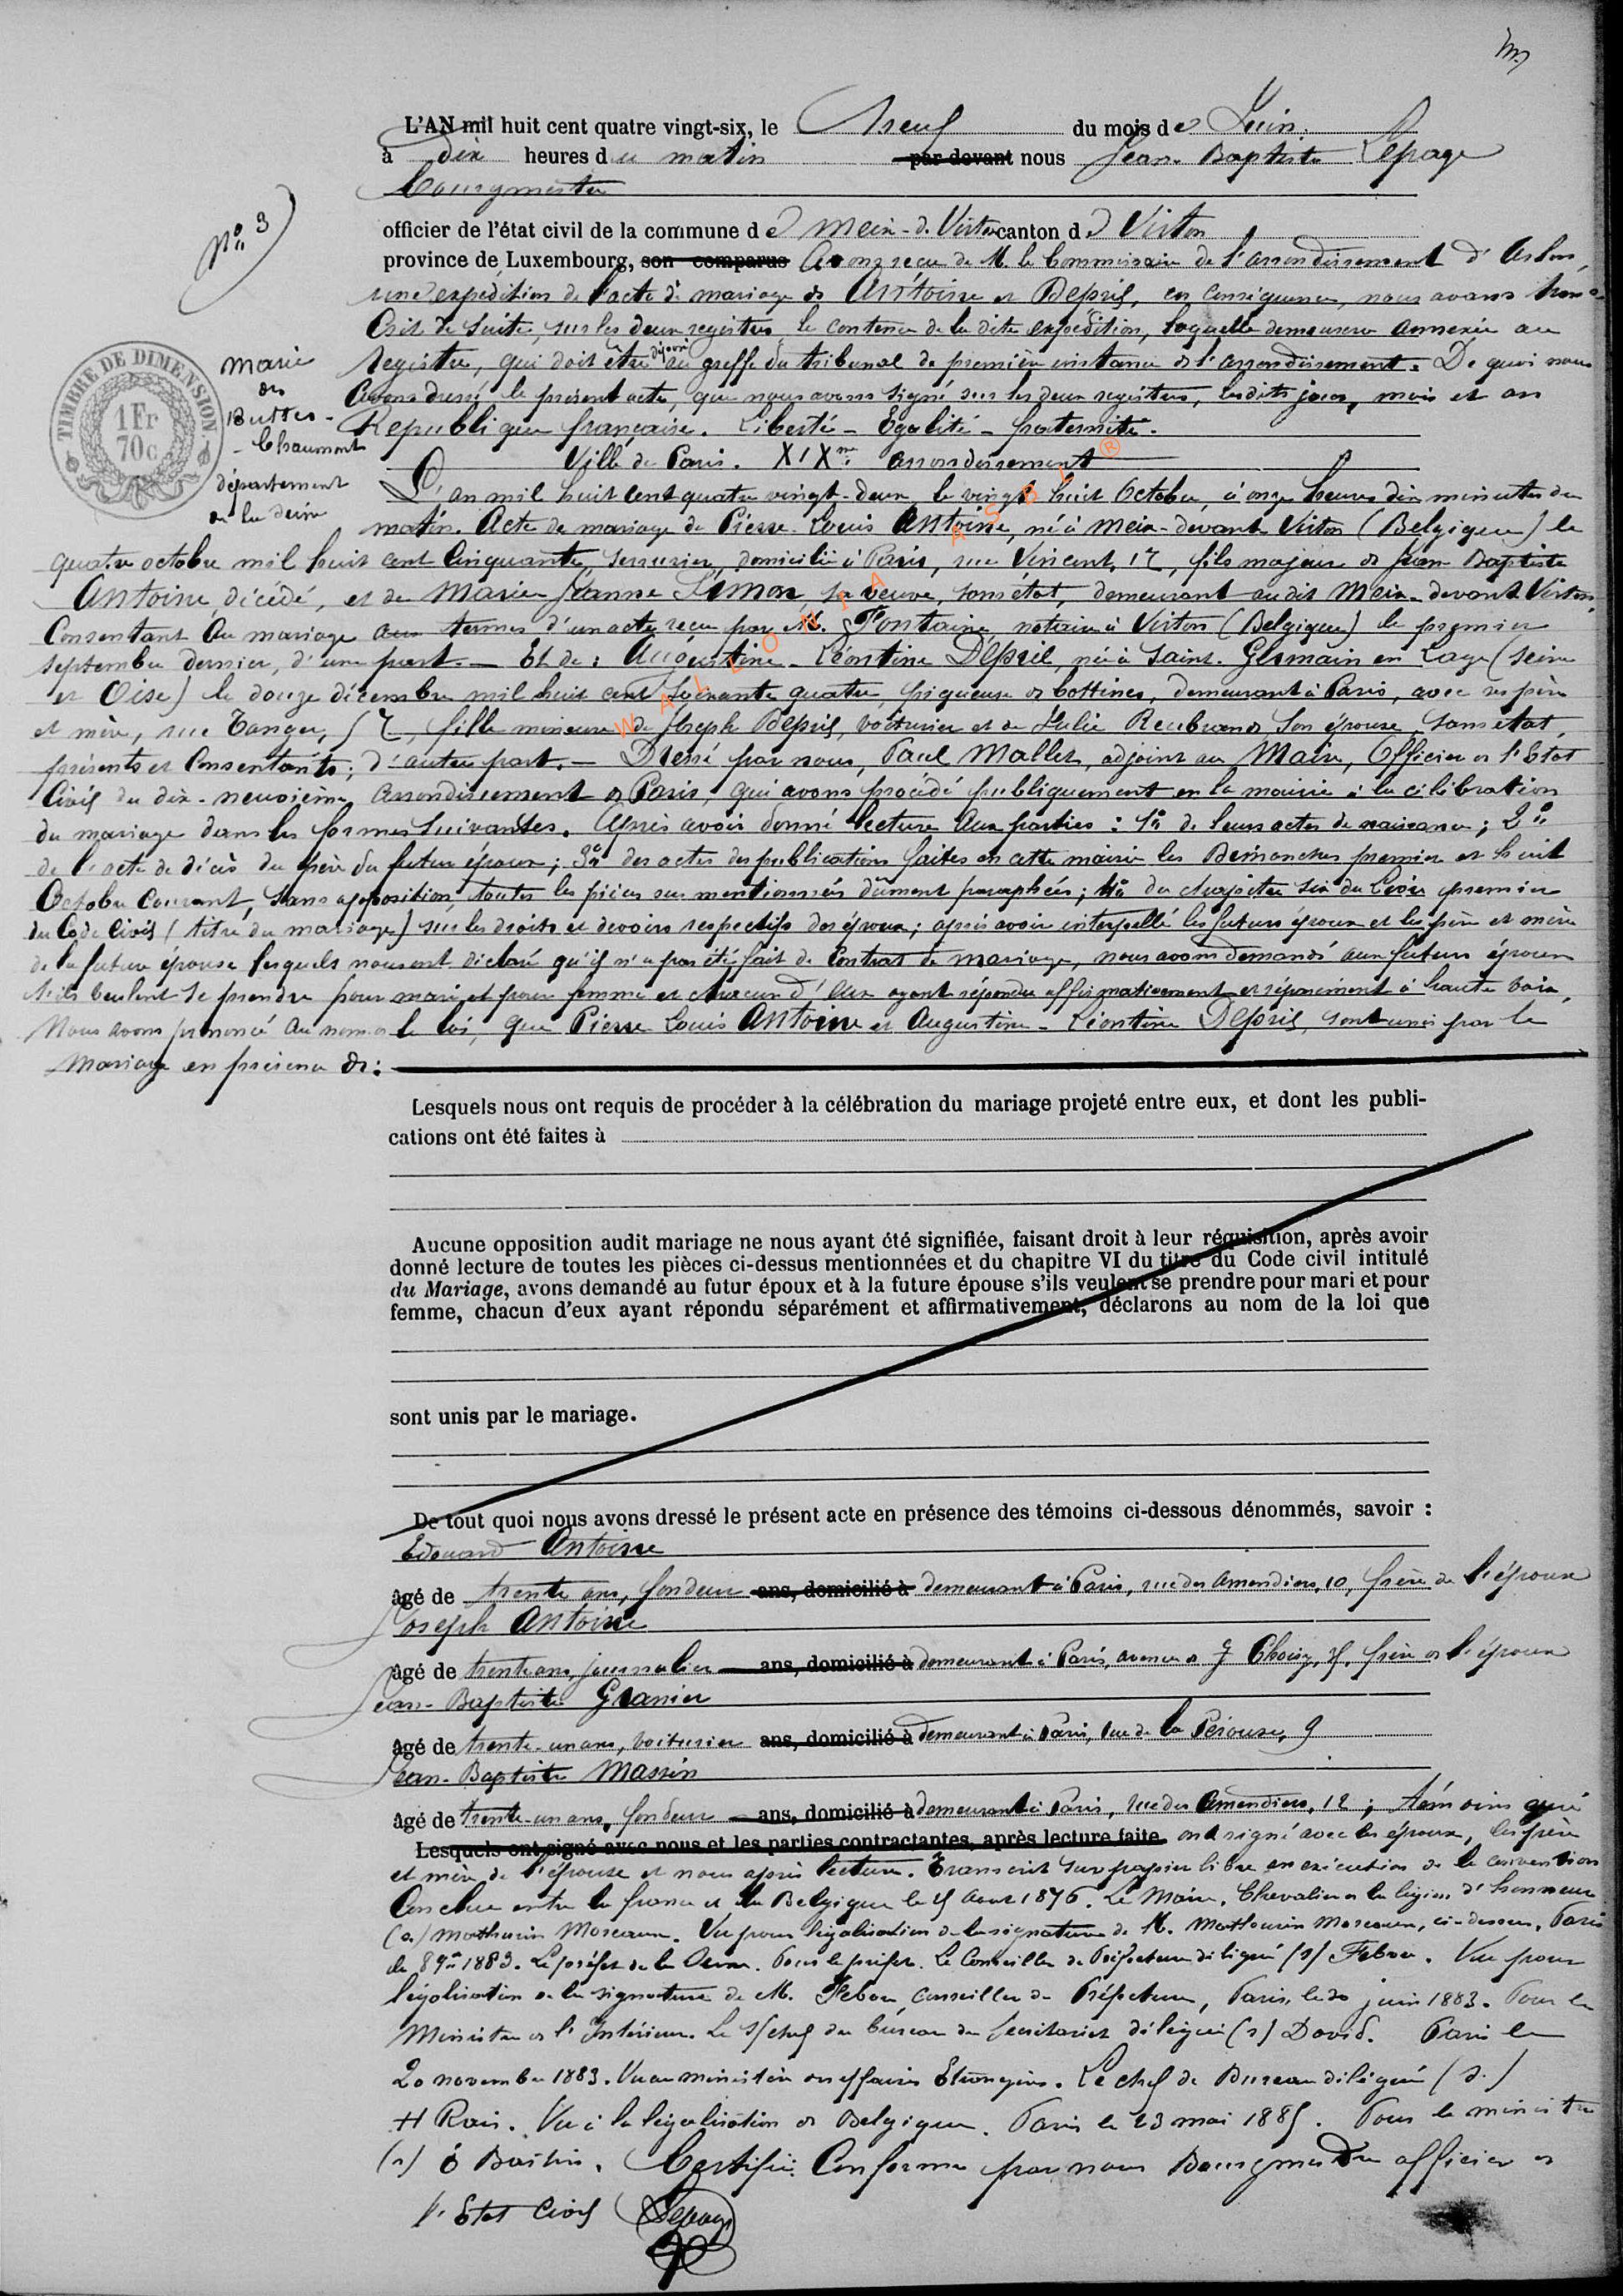 L'AN mil huit cent quatre vingt-six, le Neuf du mois de Juin
à dix heures du matin par devant nous Jean-Baptiste Lepage
bourgmestre
N° 3
officier de l'état civil de la commune de Meix-d.-Virton canton de Virton
province de Luxembourg, son comparus Avons reçu de M. le Commissaire de l'arrondissement d'Arlon,
une expédition de l'acte de mariage de Antoine et Depris, en conséquence, nous avons trans-
crit de suite, sur les deux registres le contenu de la dite expédition, laquelle demeurera annexée au
registre, qui doit être déposé au greffe du tribunal de première instance de l'arrondissement. De quoi nous
avons dressé le présent acte, que nous avons signé sur les deux registres, lesdits jour, mois et an
TIMBRE DE DIMENSION
1 Fr
70 c
Mairie
des
Buttes-
-Chaumont
département
de la Seine
Republique française. Liberté - Egalité - fraternité.
Ville de Paris. XIXme arrondissement
L'an mil huit cent quatre vingt-deux, le vingt huit Octobre, à onze heures dix minutes du
matin. Acte de mariage de Pierre-Louis Antoine, né à Meix-devant Virton (Belgique) le
quatre octobre mil huit cent cinquante, serrurier, domicilié à Paris, rue Vincent, 17, fils majeur de Jean Baptiste
Antoine, décédé, et de Marie Jeanne Simon, sa veuve, sans état, demeurant audit Meix-devant Virton,
Consentant au mariage aux termes d'un acte reçu par M. Fontaine notaire à Virton (Belgique) le premier
septembre dernier, d'une part. - Et de : Augustine-Léontine Depril, née à Saint-Germain en Laye (Seine
et Oise) le douze décembre mil huit cent soixante quatre, piqueuse de bottines, demeurant à Paris, avec ses père
et mère, rue Tanger, 57, fille mineure de Joseph Depris, voiturier et de Julie son épouse, sans état,
présents et consentants; d'autre part. - Dressé par nous, Paul Mallet, adjoint au Maire, Officier de l'Etat
Civil du dix-neuvième arrondissement de Paris, qui avons procédé publiquement en la mairie à la célébration
du mariage dans les formes suivantes. Après avoir donné lecture aux parties : 1° de leurs actes de naissance; 2°
de l'acte de décès du père du futur époux; 3° des actes des publications faites en cette mairie les Dimanches premier et huit
Octobre Courant, sans opposition, toutes les pièces sus mentionnées dûment paraphées; 4° du chapitre six du Livre premier
du Code Civil (titre du mariage) sur les droits et devoirs respectifs des époux; après avoir interpellé les futurs époux et les père et mère
de la future épouse lesquels nous ont déclaré qu'il n'a pas été fait de Contrat de mariage, nous avons demandé aux futurs époux
s'ils veulent se prendre pour mari et pour femme et chacun d'eux ayant répondu affirmativement et séparément à haute voix,
Nous avons prononcé au nom de la loi, que Pierre Louis Antoine et Augustine-Léontine Depris, sont unis par le
mariage en présence de :
WALLONIA ASBL ®
Lesquels nous ont requis de procéder à la célébration du mariage projeté entre eux, et dont les publi-
cations ont été faites à
Aucune opposition audit mariage ne nous ayant été signifiée, faisant droit à leur réquisition, après avoir
donné lecture de toutes les pièces ci-dessus mentionnées et du chapitre VI du titre du Code civil intitulé
du Mariage, avons demandé au futur époux et à la future épouse s'ils veulent se prendre pour mari et pour
femme, chacun d'eux ayant répondu séparément et affirmativement, déclarons au nom de la loi que
sont unis par le mariage.
De tout quoi nous avons dressé le présent acte en présence des témoins ci-dessous dénommés, savoir :
Edouard Antoine
âgé de trente ans, fondeur ans, domicilié à demeurant à Paris, rue des Amandiers, 10, frère de l'époux
Joseph Antoine
âgé de trente ans, journalier ans, domicilié à demeurant à Paris, avenue de Choisy, frère de l'époux
Jean-Baptiste Granier
âgé de trente-un ans, voiturier ans, domicilié à demeurant à Paris, rue de la Pérouse, 9
Jean-Baptiste Massin
âgé de trente-un ans, fondeur ans, domicilié à demeurant à Paris, rue des Amandiers, 12; témoins qui
Lesquels ont signé avec nous et les parties contractantes, après lecture faite. ont signé avec les époux, les père
et mère de l'épouse et nous après lecture. Transcrit sur papier libre en exécution de la convention
Conclue entre la france et la Belgique le 25 août 1876. Le Maire, Chevalier de la légion d'honneur
(s.) Mathurin Moreau. Vu pour légalisation de la signature de M. Mathurin Moreau, ci-dessus, Paris
le 1883. Le préfet de la Seine. Pour le préfet. Le Conseiller de Préfecture délégué (s) . Vu pour
légalisation de la signature de M. Conseiller de Préfecture, Paris, le juin 1883. Pour le
Ministre de l'Intérieur. Le s/chef du bureau du Secrétariat délégué (s) David. Paris le
20 novembre 1883. Vu au ministère des affaires Etrangères. Le chef de Bureau délégué (s.)
Vu à la légalisation de Belgique. Paris le 23 mai 1885. Pour le ministre
(s) Bastin. Certifié Conforme par nous Bourgmestre officier de
l'Etat Civil Lepage